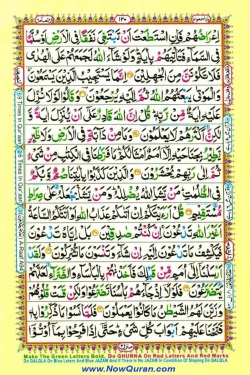 ١٣٠
إِعْرَاضُهُمْ فَإِنِ اسْتَطَعْتَ أَنْ تَبْتَغِيَ نَفَقًا فِي الْأَرْضِ أَوْ سُلَّمًا
فِي السَّمَآءِ فَتَأْتِيَهُمْ بِاٰيَةٍ وَلَوْ شَآءَ اللّٰهُ لَجَمَعَهُمْ عَلَى الْهُدٰى
فَلَا تَكُوْنَنَّ مِنَ الْجٰهِلِيْنَ إِنَّمَا يَسْتَجِيْبُ الَّذِيْنَ يَسْمَعُوْنَ
وَالْمَوْتٰى يَبْعَثُهُمُ اللّٰهُ ثُمَّ إِلَيْهِ يُرْجَعُوْنَ وَقَالُوْا لَوْلَا نُزِّلَ
عَلَيْهِ اٰيَةٌ مِّنْ رَّبِّهٖ قُلْ إِنَّ اللّٰهَ قَادِرٌ عَلٰٓى أَنْ يُّنَزِّلَ اٰيَةً
وَّلٰكِنَّ أَكْثَرَهُمْ لَا يَعْلَمُوْنَ وَمَا مِنْ دَآبَّةٍ فِي الْأَرْضِ وَلَا طٰٓئِرٍ
يَّطِيْرُ بِجَنَاحَيْهِ إِلَّآ أُمَمٌ أَمْثَالُكُمْ مَا فَرَّطْنَا فِي الْكِتٰبِ مِنْ شَيْءٍ
ثُمَّ إِلٰى رَبِّهِمْ يُحْشَرُوْنَ وَالَّذِيْنَ كَذَّبُوْا بِاٰيٰتِنَا صُمٌّ وَّبُكْمٌ
فِي الظُّلُمٰتِ مَنْ يَّشَإِ اللّٰهُ يُضْلِلْهُ وَمَنْ يَّشَأْ يَجْعَلْهُ عَلٰى صِرَاطٍ
مُّسْتَقِيْمٍ قُلْ أَرَءَيْتَكُمْ إِنْ أَتٰىكُمْ عَذَابُ اللّٰهِ أَوْ أَتَتْكُمُ السَّاعَةُ
أَغَيْرَ اللّٰهِ تَدْعُوْنَ إِنْ كُنْتُمْ صٰدِقِيْنَ بَلْ إِيَّاهُ تَدْعُوْنَ
فَيَكْشِفُ مَا تَدْعُوْنَ إِلَيْهِ إِنْ شَآءَ وَتَنْسَوْنَ مَا تُشْرِكُوْنَ وَلَقَدْ
أَرْسَلْنَآ إِلٰٓى أُمَمٍ مِّنْ قَبْلِكَ فَأَخَذْنٰهُمْ بِالْبَأْسَآءِ وَالضَّرَّآءِ لَعَلَّهُمْ
يَتَضَرَّعُوْنَ فَلَوْلَآ إِذْ جَآءَهُمْ بَأْسُنَا تَضَرَّعُوْا وَلٰكِنْ قَسَتْ قُلُوْبُهُمْ
وَزَيَّنَ لَهُمُ الشَّيْطٰنُ مَا كَانُوْا يَعْمَلُوْنَ فَلَمَّا نَسُوْا مَا ذُكِّرُوْا بِهٖ
فَتَحْنَا عَلَيْهِمْ أَبْوَابَ كُلِّ شَيْءٍ حَتّٰٓى إِذَا فَرِحُوْا بِمَآ أُوْتُوْٓا
Make The Green Letters Bold, Do GHUNNA On Red Letters And Red Marks
Do QALQLA On Blue Letters And Blue JAZAM And If There Is No JAZAM In Condition Of Stopping Do QALQLA
www.NowQuran.com